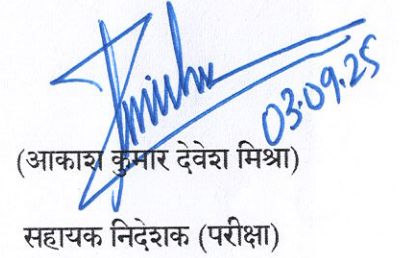 03.09.25
(आकाश कुमार देवेश मिश्रा)
सहायक निदेशक (परीक्षा)